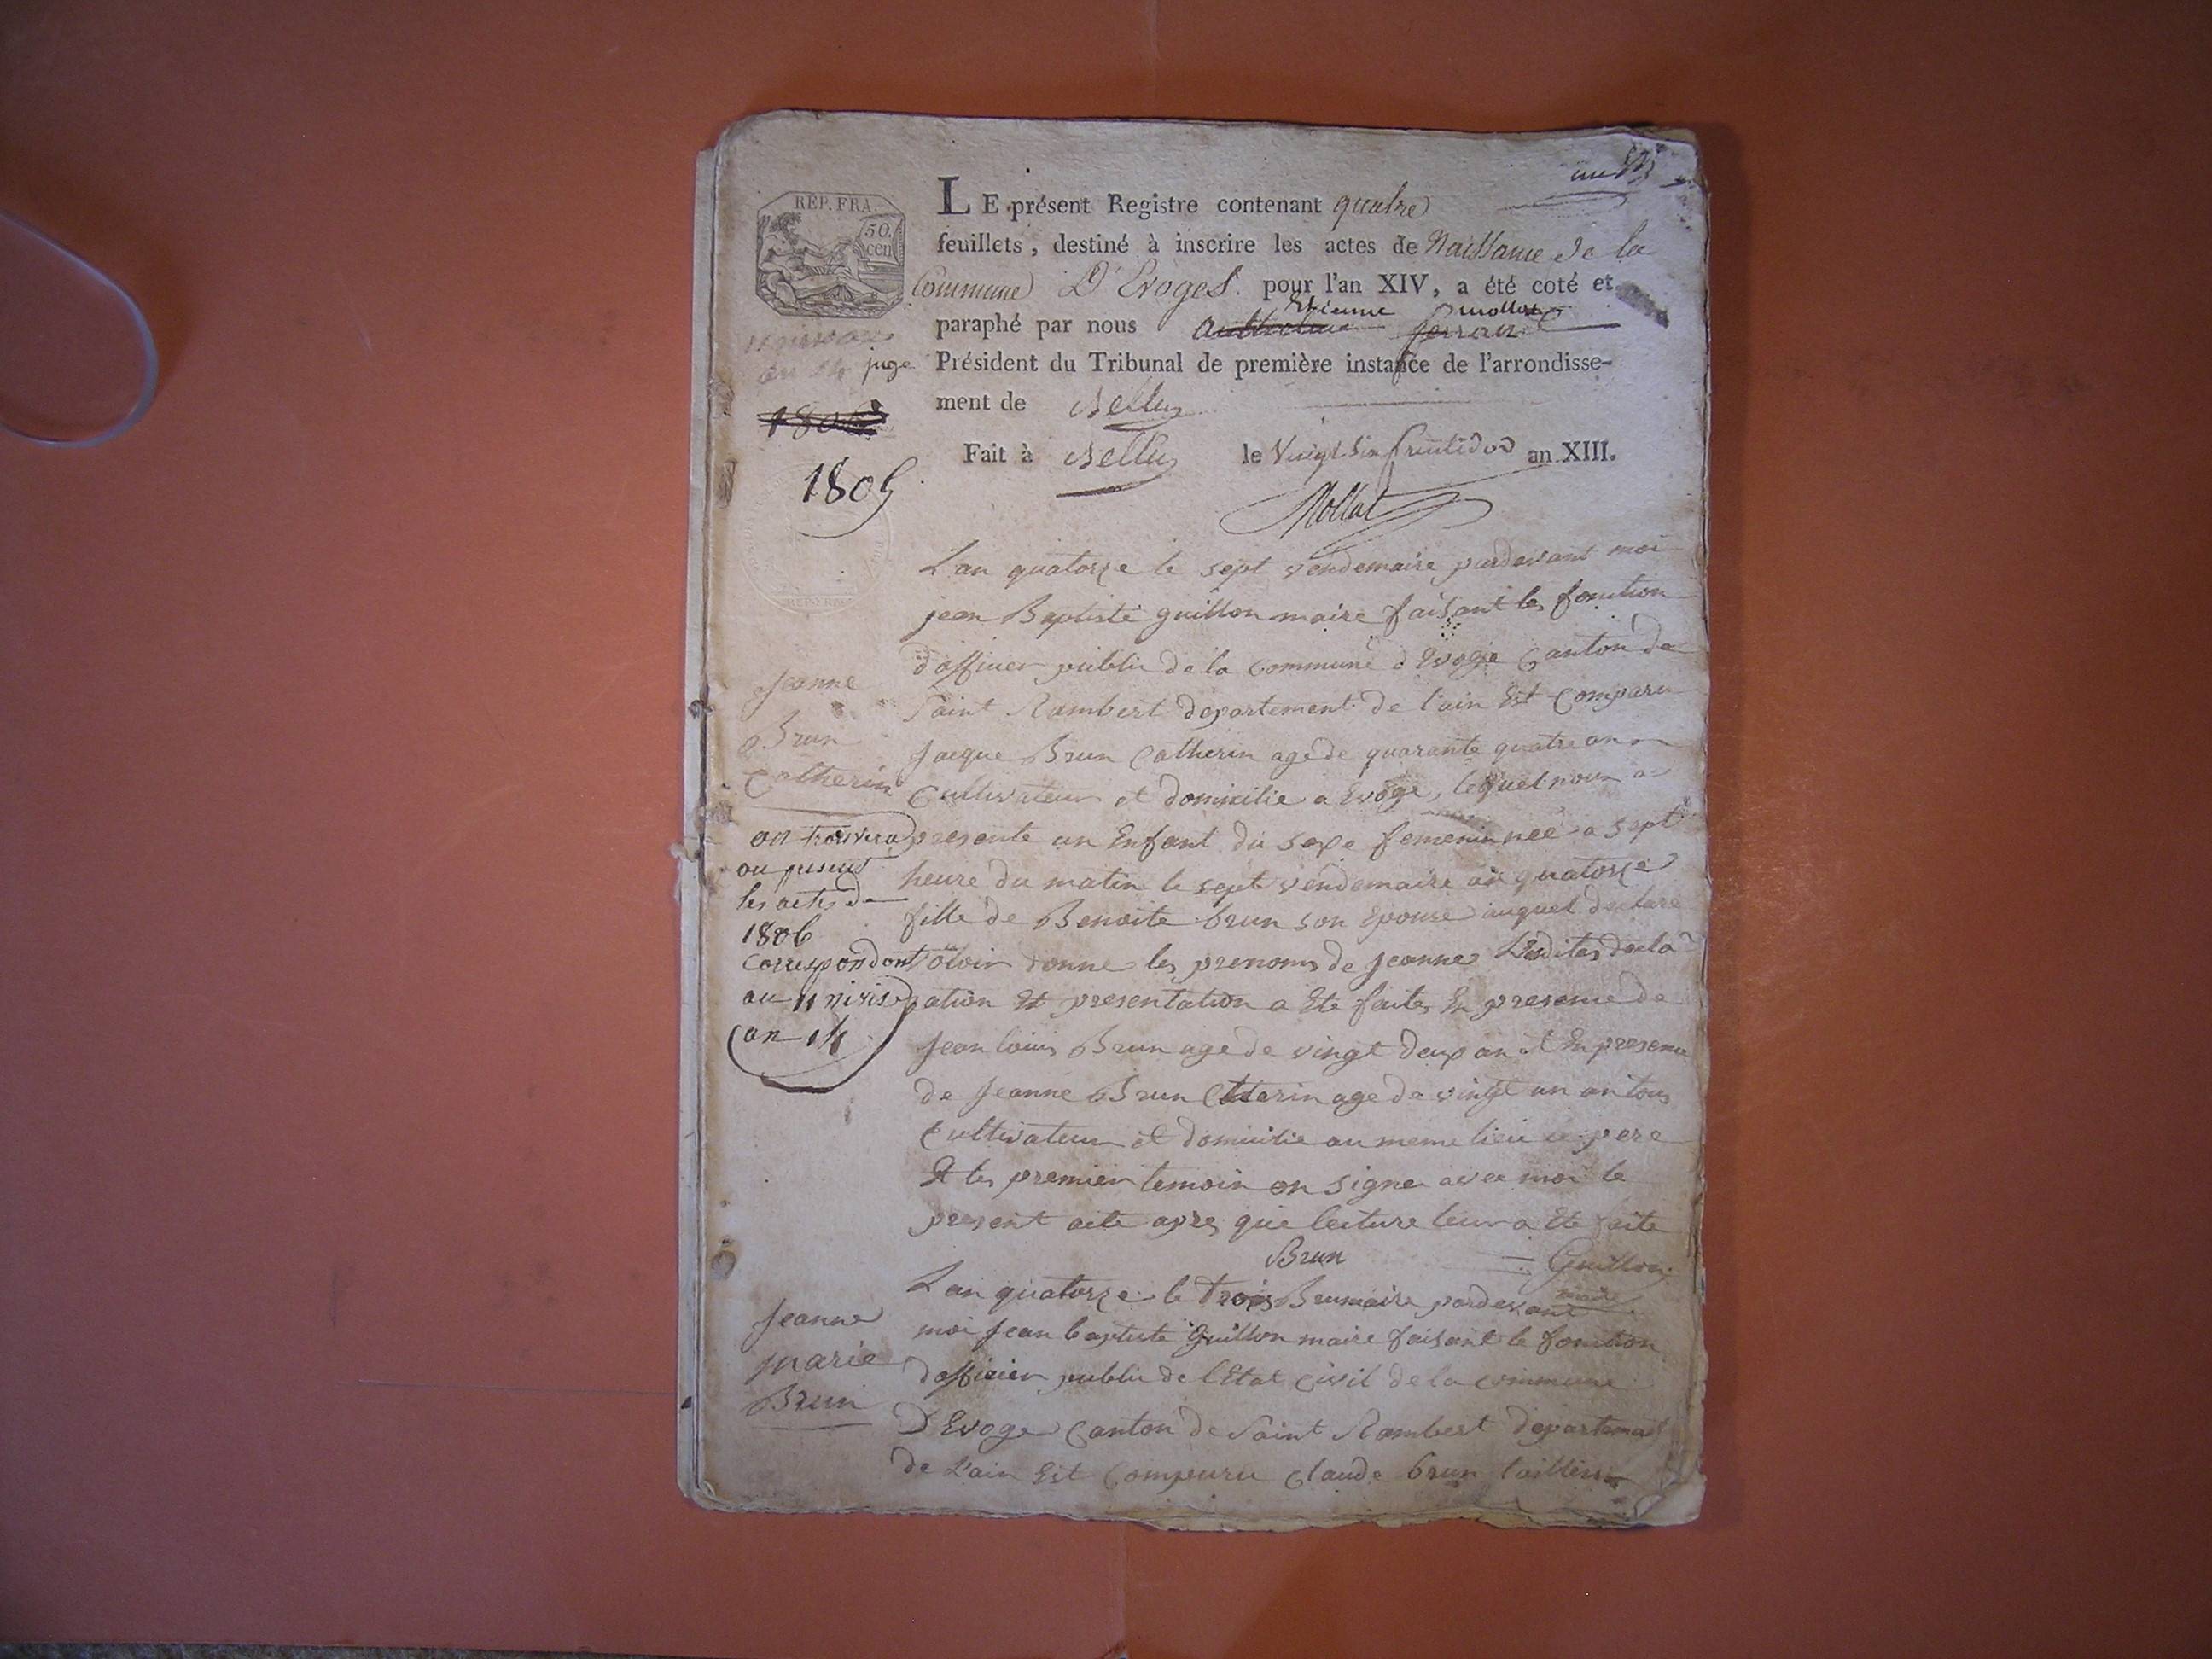 REP. FRA.
50.
cen
LE présent Registre contenant quatre
feuillets, destiné à inscrire les actes de Naissance de la
Commune D'Evoges. pour l'an XIV, a été coté et
Etienne Mollat
paraphé par nous
juge Président du Tribunal de première instance de l'arrondisse-
ment de Belley
Fait à Belley le Vingt Six fructidor an XIII.
an 14
1805
Mollat
L'an quatorze le sept vendemaire pardevant moi
jean Baptiste guillon maire faisant les fonction
d'officier public de la commune d'Evoge Canton de
Saint Rambert departement de l'ain Est Comparu
Jacque Brun Catherin age de quarante quatre an
Cultivateur et domicilie a Evoge, lequel nous a
presente un Enfant du sexe femenin neé a sept
heure du matin le sept vendemaire an quatorze
fille de Benoite brun son Epouse auquel declare
voloir donne les prenoms de Jeanne Lesdites decla
ration Et presentation a Ete faites En presence de
Jean louis Brun age de vingt deux an et En presence
de Jeanne Brun Catterin age de vingt un an tous
Cultivateur et domicilie au meme lieu le pere
Et les premier temoin on signe avec moi le
present acte apres que lecture leur a Ete faite
Brun Guillon
maire
Jeanne
Brun
Catherin
on trouvera
les actes de
1806
correspondont
au 11 nivise
an 14
L'an quatorze le trois Brumaire pardevant
moi Jean baptiste Guillon maire faisant le fonction
d'officier public de l'Etat Civil de la commune
D'Evoge Canton de Saint Rambert departemat
de L'ain Est Comparu Claude brun tailleur
Jeanne
marie
Brun